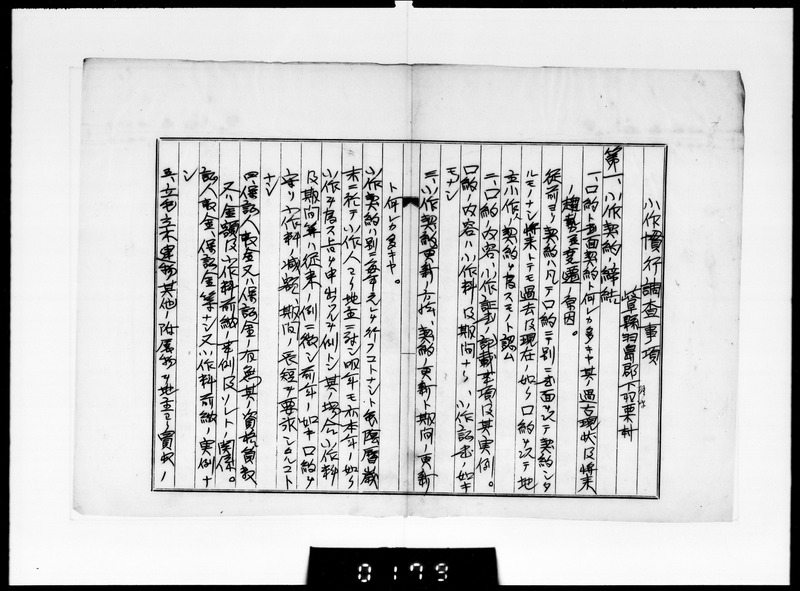 小作慣行調査事項
岐阜縣羽島郡下羽栗村
第一、小作契約ノ締結
一、口約ト書面契約ト何レカ多キヤ其ノ過去現状及將来
ノ趨勢並変遷ノ原因。
従前ヨリ契約ハ凡テ口約ニテ別ニ書面ヲ以テ契約シタ
ルモノナシ将来トテモ過去及現在ノ如ク口約ヲ以テ地
主小作人契約ヲ為スモノト認ム
二、口約ノ内容、小作証書ノ記載事項及其実例。
口約ノ内容ハ小作料及期間ナリ、小作証書ノ如キ
モナシ
三、小作契約更新ノ方法、契約ノ更新ト期間ノ更新
ト何レカ多キヤ。
小作契約ハ別ニ毎年之レヲ行フコトナシト雖陰暦歳
末ニ於テ小作人ヨリ地主ニ対シ明年モ亦本年ノ如ク
小作ヲ為ス旨ヲ申出ツルヲ例トシ其ノ場合小作料
及期間等ハ従来ノ例ニ徴シ前年ノ如キ口約ヲ
守リ小作料ノ減額、期間ノ長短ヲ要求シタルコト
ナシ
四、保証人敷金又ハ保証金ノ有無其ノ資格員数
又ハ金額及小作料前納ノ事例及ソレトノ関係。
証人敷金保証金等ナシ又小作料前納ノ実例ナ
シ
五、立毛立木建物其他ノ附属物ヲ地主ヨリ買取ノ
0179